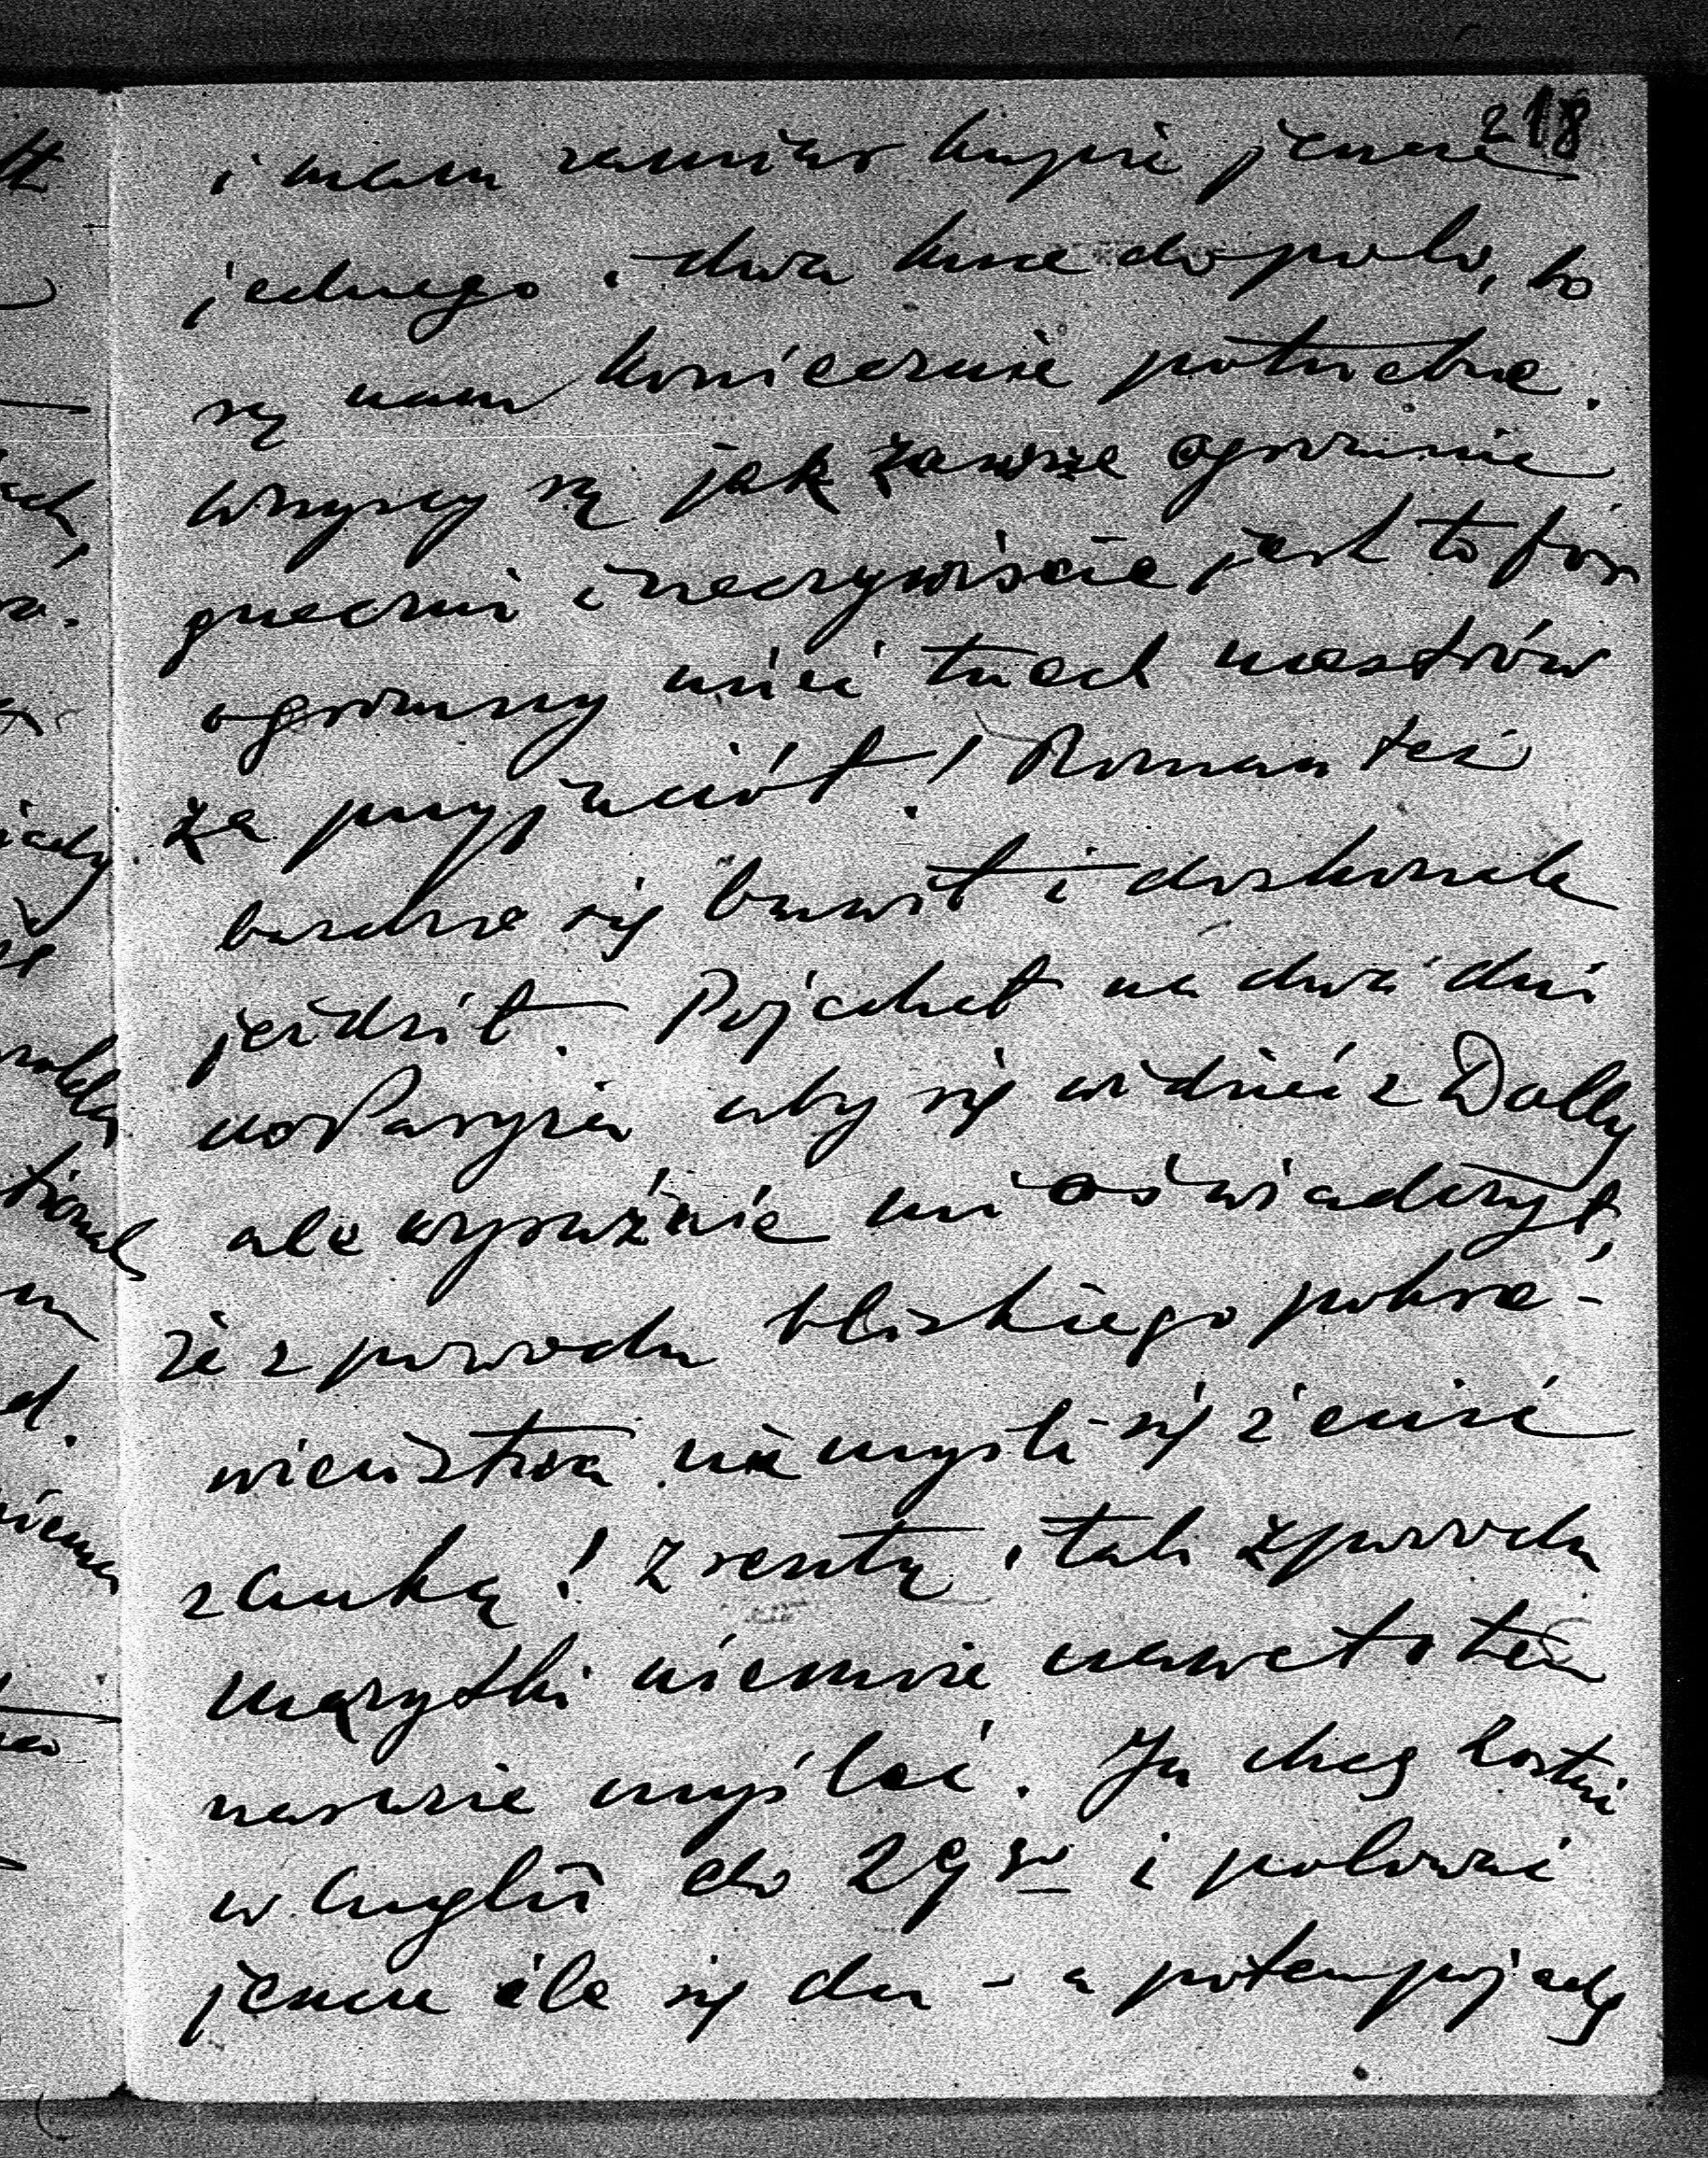 218
i mam zamiar kupić jeszcze
jednego i dwa kuce do polo, bo
są nam koniecznie potrzebne.
Wszyscy są jak zawsze ogromnie
grzeczni i rzeczywiście jest to for
ogromny mieć trzech mastrów
za przyjaciół! Roman też
bardzo się bawił i doskonale
jeździł. Pojechał na dwa dni
do Paryża aby się widzieć z Dolly
ale wyraźnie mi oświadczył,
że z powodu bliskiego pokre-
wieństwa nie myśli się żenić
z Anką! Zresztą i tak z powodu
Maryśki niemoże nawet o tem
narazie myśleć. Ja chcę zostać
w Anglii do 29go i polować
jeszcze ile się da - a potem pojadę